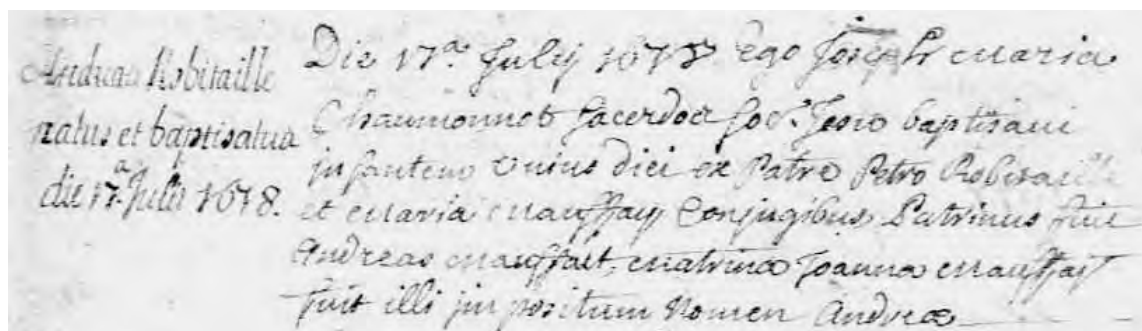 Andreas Robitaille
natus et baptisatus
die 17.a Julii 1678.
Die 17.a Julij 1678 Ego Joseph maria
Chaumonnot Sacerdos Soc. Jesu baptisavi
infantem unius diei ex Patre Petro Robitaille
et maria mauffay Conjugibus Patrinus fuit
Andreas mauffait, matrina Joanna mauffait
fuit illi impositum Nomen Andreæ